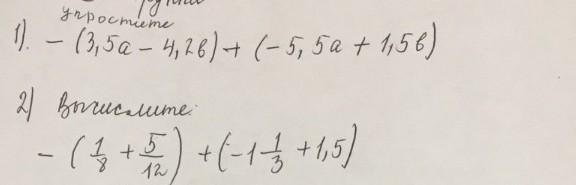 упростите
1). - (3,5а - 4,2в) + (-5,5а + 1,5в)
2) Вычислите:
- (1/8 + 5/12) + (-1 1/3 + 1,5)